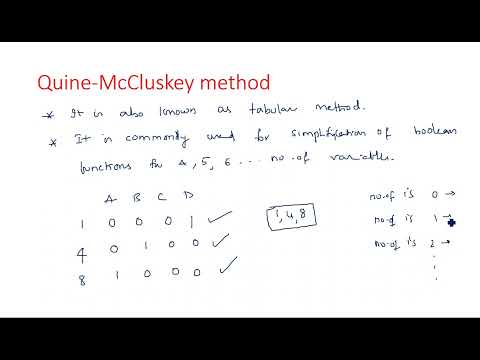 Quine-McCluskey method
* It is also known as tabular method.
* It is commonly used for simplification of boolean
functions for 4, 5, 6 ... no. of variables.
A B C D
1 0 0 0 1 ✓
4 0 1 0 0 ✓
8 1 0 0 0 ✓
1, 4, 8
no. of 1s 0 →
no. of 1s 1 →
no. of 1s 2 →